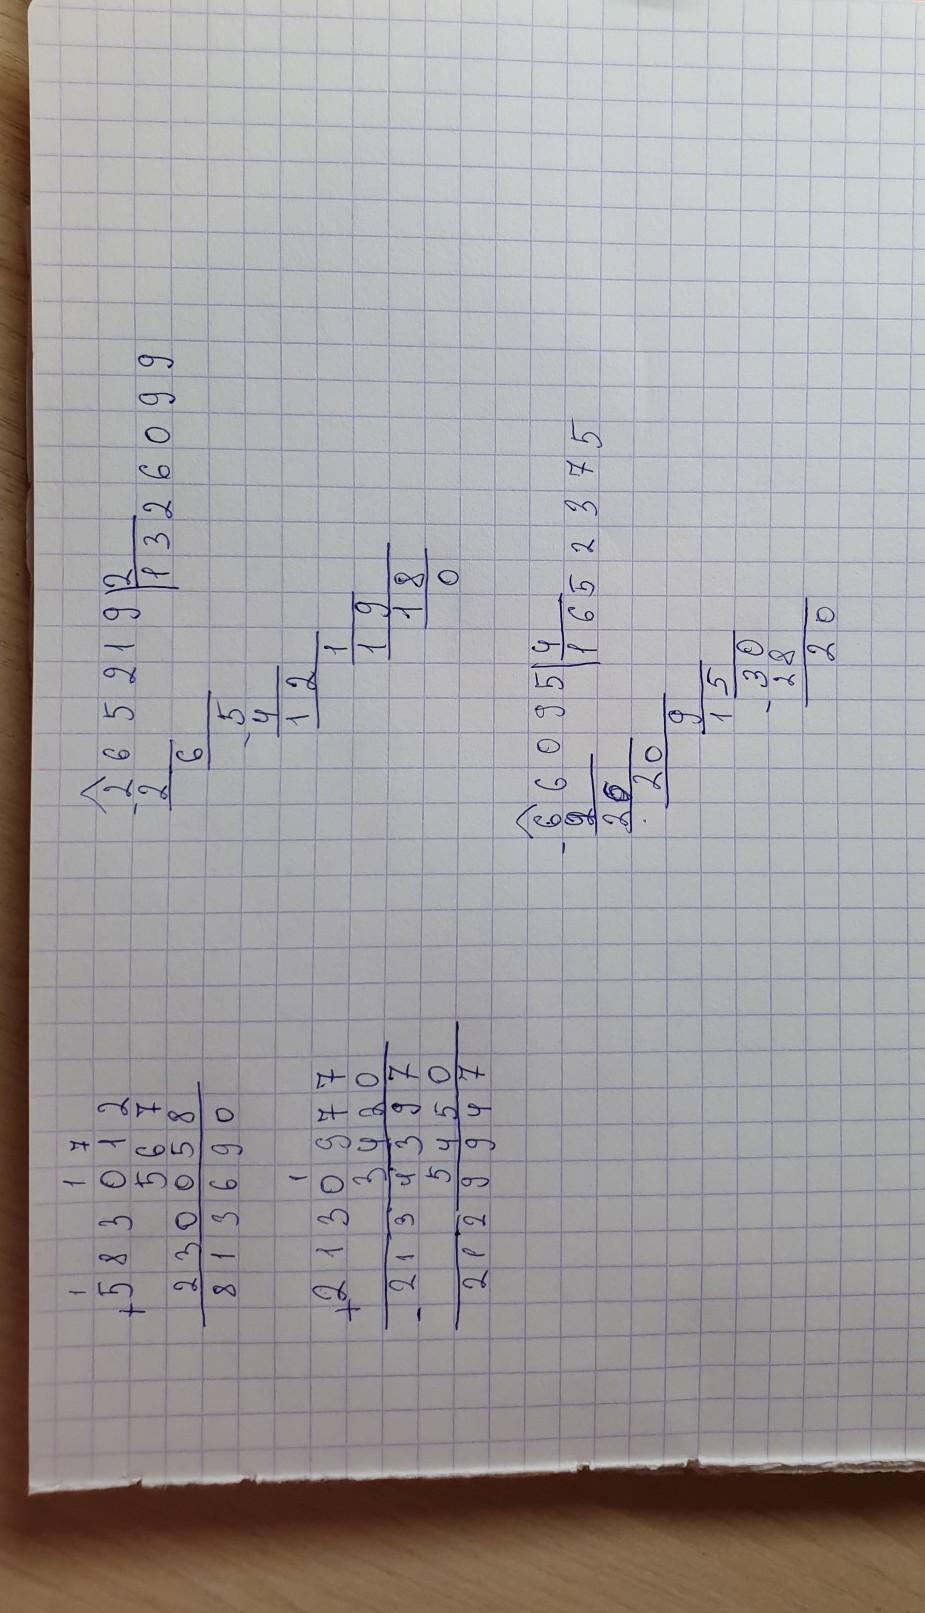 1 1 7
+5 8 3 0 1 2
5 6 7
2 3 0 0 5 8
8 1 3 6 9 0
1
+2 1 3 0 9 7 7
3 4 2 0
- 2 1 3 4 3 9 7
5 4 5 0
2 1 2 9 9 4 7
-2 6 5 2 1 9 2
2 1 3 2 6 0 9 9
6
-5
4
1 2
1
1 9
1 8
0
-6 6 0 9 5 4
1 6 5 2 3 7 5
2 6
20
9
1 5
-30
28
20